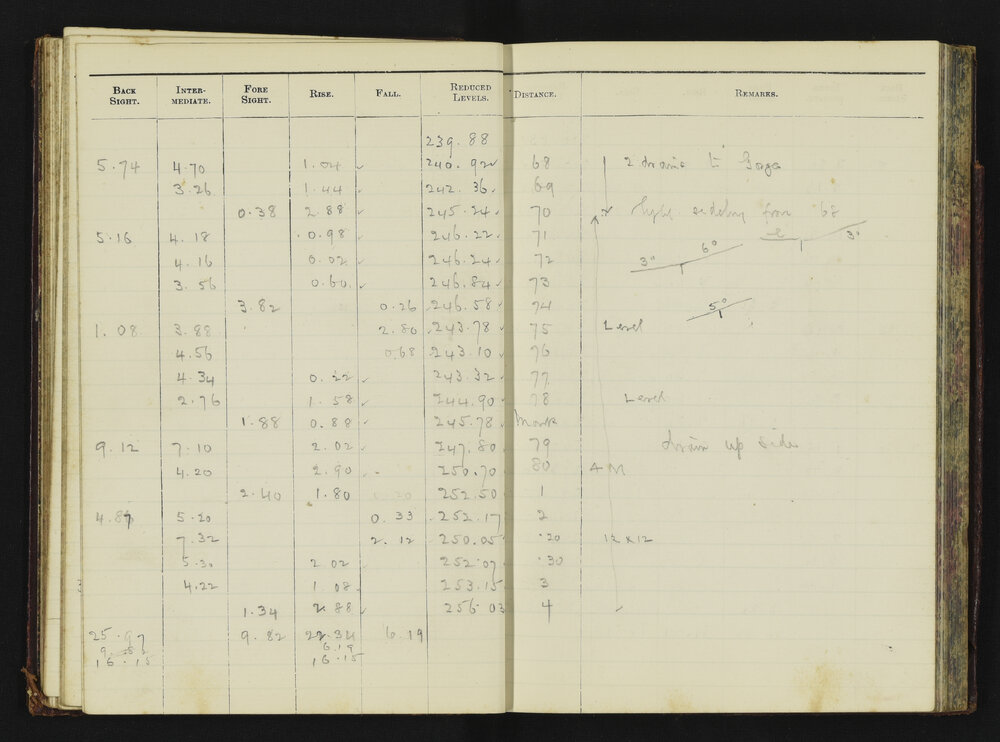 BACK SIGHT. INTERMEDIATE. FORE SIGHT. RISE. FALL. REDUCED LEVELS. DISTANCE. REMARKS.
239.88
5.74 4.70 1.04 240.92 68 2 drains to
3.26 1.44 242.36 69
0.38 2.88 245.24 70 from 68
5.16 4.18 0.98 246.22 71 6° 3°
4.16 0.02 246.24 72 3°
3.56 0.60 246.84 73
3.82 0.26 246.58 74 5°
1.08 3.88 2.80 243.78 75 Level
4.56 0.68 243.10 76
4.34 0.22 243.32 77
2.76 1.58 244.90 78 Level
1.88 0.88 245.78 Mark
9.12 7.10 2.02 247.80 79 drain up side
4.20 2.90 250.70 80 4 M
2.40 1.80 252.50 1
4.87 5.20 0.33 252.17 2
7.32 2.12 250.05 .20 12 x 12
5.30 2.02 252.07 .30
4.22 1.08 253.15 3
1.34 2.88 256.03 4
25.97 9.82 22.34 6.19
9.82 6.19
16.15 16.15